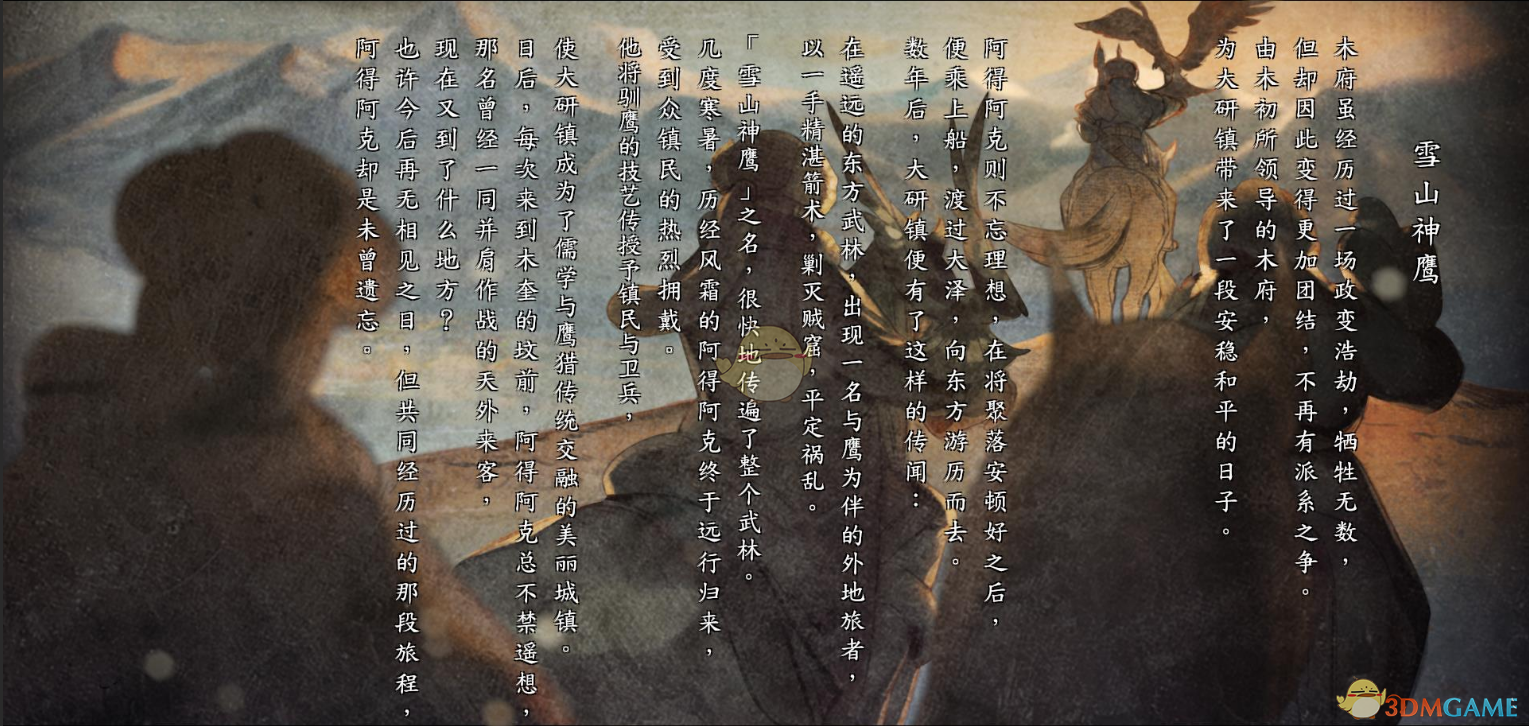 雪山神鹰
木府虽经历过一场政变浩劫，牺牲无数，
但却因此变得更加团结，不再有派系之争。
由木初所领导的木府，
为大研镇带来了一段安稳和平的日子。
阿得阿克则不忘理想，在将聚落安顿好之后，
便乘上船，渡过大泽，向东方游历而去。
数年后，大研镇便有了这样的传闻：
在遥远的东方武林，出现一名与鹰为伴的外地旅者，
以一手精湛箭术，剿灭贼窟，平定祸乱。
「雪山神鹰」之名，很快地传遍了整个武林。
几度寒暑，历经风霜的阿得阿克终于远行归来，
受到众镇民的热烈拥戴。
他将驯鹰的技艺传授予镇民与卫兵，
使大研镇成为了儒学与鹰猎传统交融的美丽城镇。
日后，每次来到木奎的坟前，阿得阿克总不禁遥想，
那名曾经一同并肩作战的天外来客，
现在又到了什么地方？
也许今后再无相见之日，但共同经历过的那段旅程，
阿得阿克却是未曾遗忘。
3DMGAME